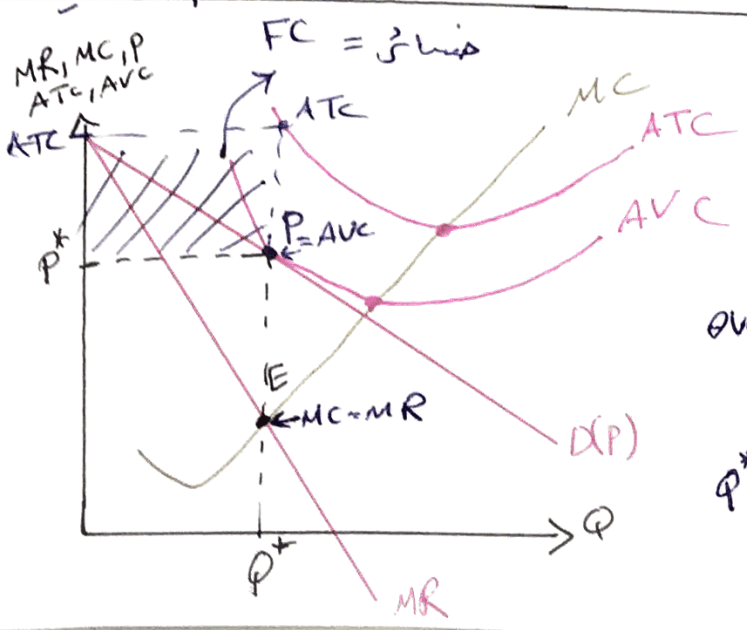 FC =
MR, MC, P
ATC, AVC
ATC
ATC
MC
ATC
AVC
P=AVC
P*
E
MC=MR
D(P)
Q
Q*
MR